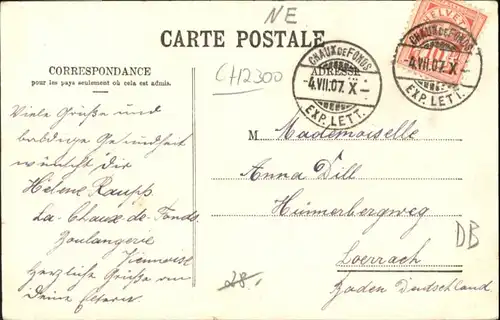 NE
CARTE POSTALE
HELVETIA
CHAUX DE FONDS
-4.VII.07.X-
EXP. LETT.
CHAUX DE FONDS
-4.VII.07.X-
EXP. LETT.
CORRESPONDANCE
pour les pays seulement où cela est admis.
CH2300
ADRESSE
Viele Grüsse und
baldige Gesundheit
wünscht dir
Helene Raupp
La-Chaux-de-Fonds
Boulangerie
Viennoise
Herzliche Grüsse an
Deine Eltern.
M Mademoiselle
Anna Dill
Hünerbergweg
Loerrach
Baden Deutschland.
DB
28.